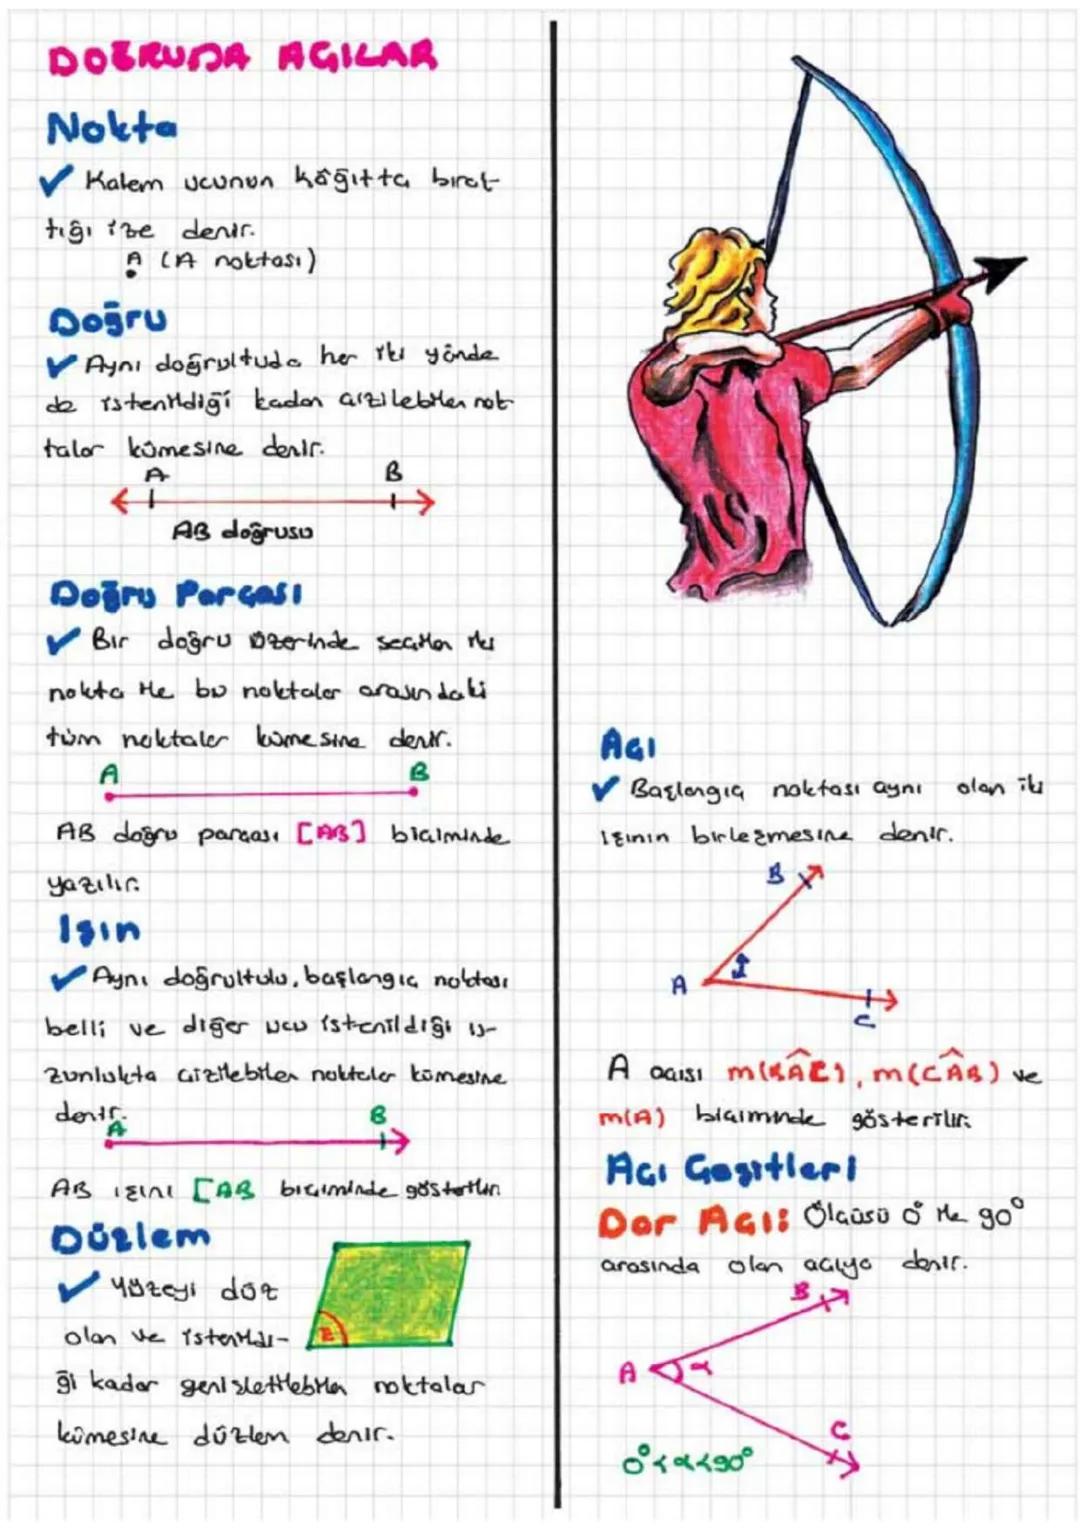 DOĞRUDA AÇILAR
Nokta
✓ Kalem ucunun kâğıtta bırak-
tığı ize denir.
A (A noktası)
Doğru
✓ Aynı doğrultuda her iki yönde
de istenildiği kadar çizilebilen nok-
talar kümesine denir.
A B
AB doğrusu
Doğru Parçası
✓ Bir doğru üzerinde seçilen iki
nokta ile bu noktalar arasındaki
tüm noktalar kümesine denir.
A B
AB doğru parçası [AB] biçiminde
yazılır.
Işın
✓ Aynı doğrultulu, başlangıç noktası
belli ve diğer ucu istenildiği u-
zunlukta çizilebilen noktalar kümesine
denir.
A B
AB ışını [AB biçiminde gösterilir.
Düzlem
✓ Yüzeyi düz
olan ve istenildi-
ği kadar genişletilebilen noktalar
kümesine düzlem denir.
E
Açı
✓ Başlangıç noktası aynı olan iki
ışının birleşmesine denir.
B
A
C
A açısı m(BÂC), m(CÂB) ve
m(A) biçiminde gösterilir.
Açı Çeşitleri
Dar Açı: Ölçüsü 0° ile 90°
arasında olan açıya denir.
B
A α
C
0°<α<90°